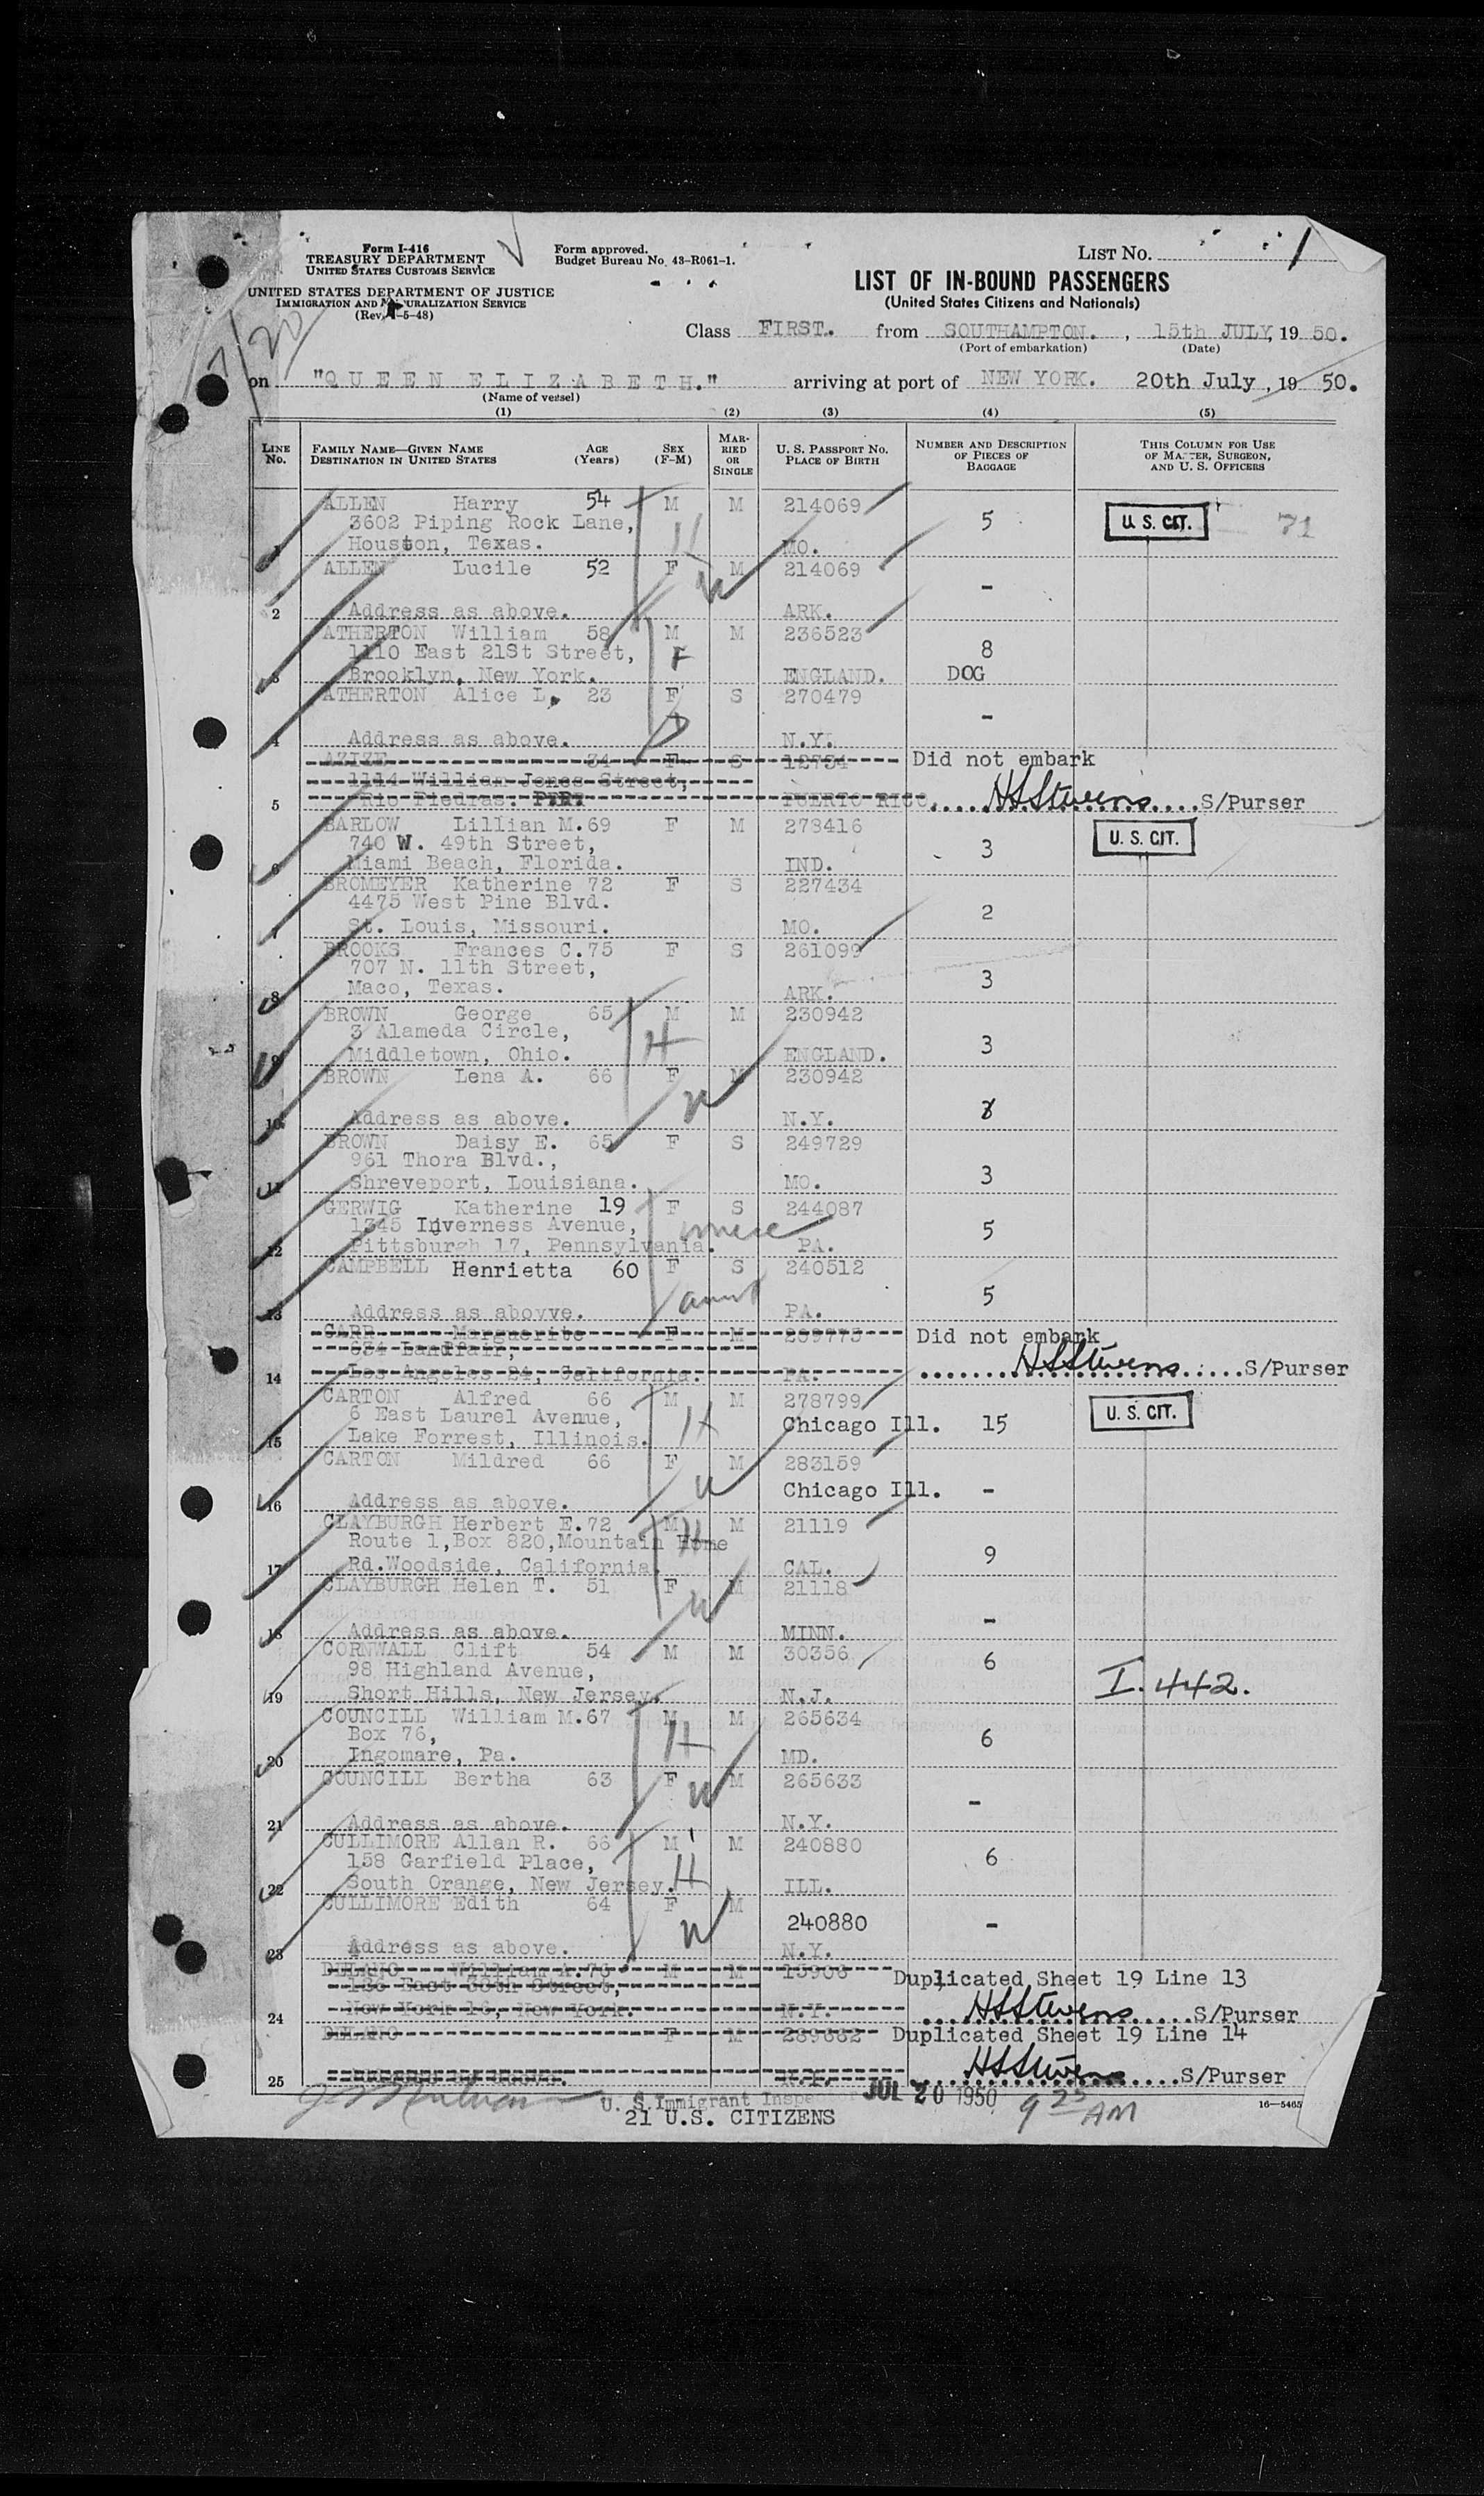 Form I-416
TREASURY DEPARTMENT
UNITED STATES CUSTOMS SERVICE
UNITED STATES DEPARTMENT OF JUSTICE
IMMIGRATION AND NATURALIZATION SERVICE
(Rev. -5-48)
Form approved.
Budget Bureau No. 43-R061-1.
LIST No. 1
LIST OF IN-BOUND PASSENGERS
(United States Citizens and Nationals)
7/20
Class FIRST. from SOUTHAMPTON. , 15th JULY, 19 50.
(Port of embarkation) (Date)
on "QUEEN ELIZABETH." arriving at port of NEW YORK. 20th July , 19 50.
(Name of vessel)
(1) (2) (3) (4) (5)
LINE No. FAMILY NAME—GIVEN NAME DESTINATION IN UNITED STATES AGE (Years) SEX (F-M) MARRIED OR SINGLE U. S. PASSPORT No. PLACE OF BIRTH NUMBER AND DESCRIPTION OF PIECES OF BAGGAGE THIS COLUMN FOR USE OF MASTER, SURGEON, AND U. S. OFFICERS
ALLEN Harry 54 M M 214069 5 U. S. CIT. 71
3602 Piping Rock Lane,
1 Houston, Texas. H MO.
ALLEN Lucile 52 F M 214069 -
W
2 Address as above. ARK.
ATHERTON William 58 M M 236523 8
1110 East 21St Street, F
3 Brooklyn, New York. ENGLAND. DOG
ATHERTON Alice L. 23 F S 270479 -
D
4 Address as above. N.Y.
AZIZE 34 F S 12734 Did not embark
1114 William Jones Street,
5 Rio Piedras. P.R. PUERTO RICO. HSStevens S/Purser
BARLOW Lillian M. 69 F M 273416 3 U. S. CIT.
740 W. 49th Street,
6 Miami Beach, Florida. IND.
BROMEYER Katherine 72 F S 227434 2
4475 West Pine Blvd.
7 St. Louis, Missouri. MO.
BROOKS Frances C. 75 F S 261099 3
707 N. 11th Street,
8 Maco, Texas. ARK.
BROWN George 65 M M 230942 3
3 Alameda Circle, H
9 Middletown, Ohio. ENGLAND.
BROWN Lena A. 66 F M 230942
W
10 Address as above. N.Y.
BROWN Daisy E. 65 F S 249729 3
961 Thora Blvd.,
11 Shreveport, Louisiana. MO.
GERWIG Katherine 19 F S 244087 5
1345 Inverness Avenue, niece
12 Pittsburgh 17, Pennsylvania. PA.
CAMPBELL Henrietta 60 F S 240512 5
aunt
13 Address as abovve. PA.
CARR Marguerite F M 209773 Did not embark
634 Landfair,
14 Los Angeles 24, California. PA. HSStevens S/Purser
CARTON Alfred 66 M M 278799 U. S. CIT.
6 East Laurel Avenue, H Chicago Ill. 15
15 Lake Forrest, Illinois.
CARTON Mildred 66 F M 283159
W Chicago Ill. -
16 Address as above.
CLAYBURGH Herbert E. 72 M M 21119
Route 1,Box 820,Mountain Home H 9
17 Rd.Woodside, California. CAL.
CLAYBURGH Helen T. 51 F M 21118
W -
18 Address as above. MINN.
CORNWALL Clift 54 M M 30356 6
98 Highland Avenue, I.442.
19 Short Hills, New Jersey. N.J.
COUNCILL William M. 67 M M 265634 6
Box 76, H
20 Ingomare, Pa. MD.
COUNCILL Bertha 63 F M 265633
W -
21 Address as above. N.Y.
CULLIMORE Allan R. 66 M M 240880 6
158 Garfield Place, H
22 South Orange, New Jersey. ILL.
CULLIMORE Edith 64 F M
W 240880 -
23 Address as above. N.Y.
DELANO William A. 76 M M 15906 Duplicated Sheet 19 Line 13
East 36th Street,
24 New York 16, New York. N.Y. HSStevens S/Purser
DELANO F M 289662 Duplicated Sheet 19 Line 14
25 HSStevens S/Purser
U. S. Immigrant Inspe JUL 20 1950 9 25 AM
21 U.S. CITIZENS
16—5465